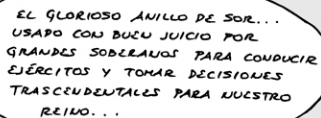 EL GLORIOSO ANILLO DE SOR...
USADO CON BUEN JUICIO POR
GRANDES SOBERANOS PARA CONDUCIR
EJÉRCITOS Y TOMAR DECISIONES
TRASCENDENTALES PARA NUESTRO
REINO...